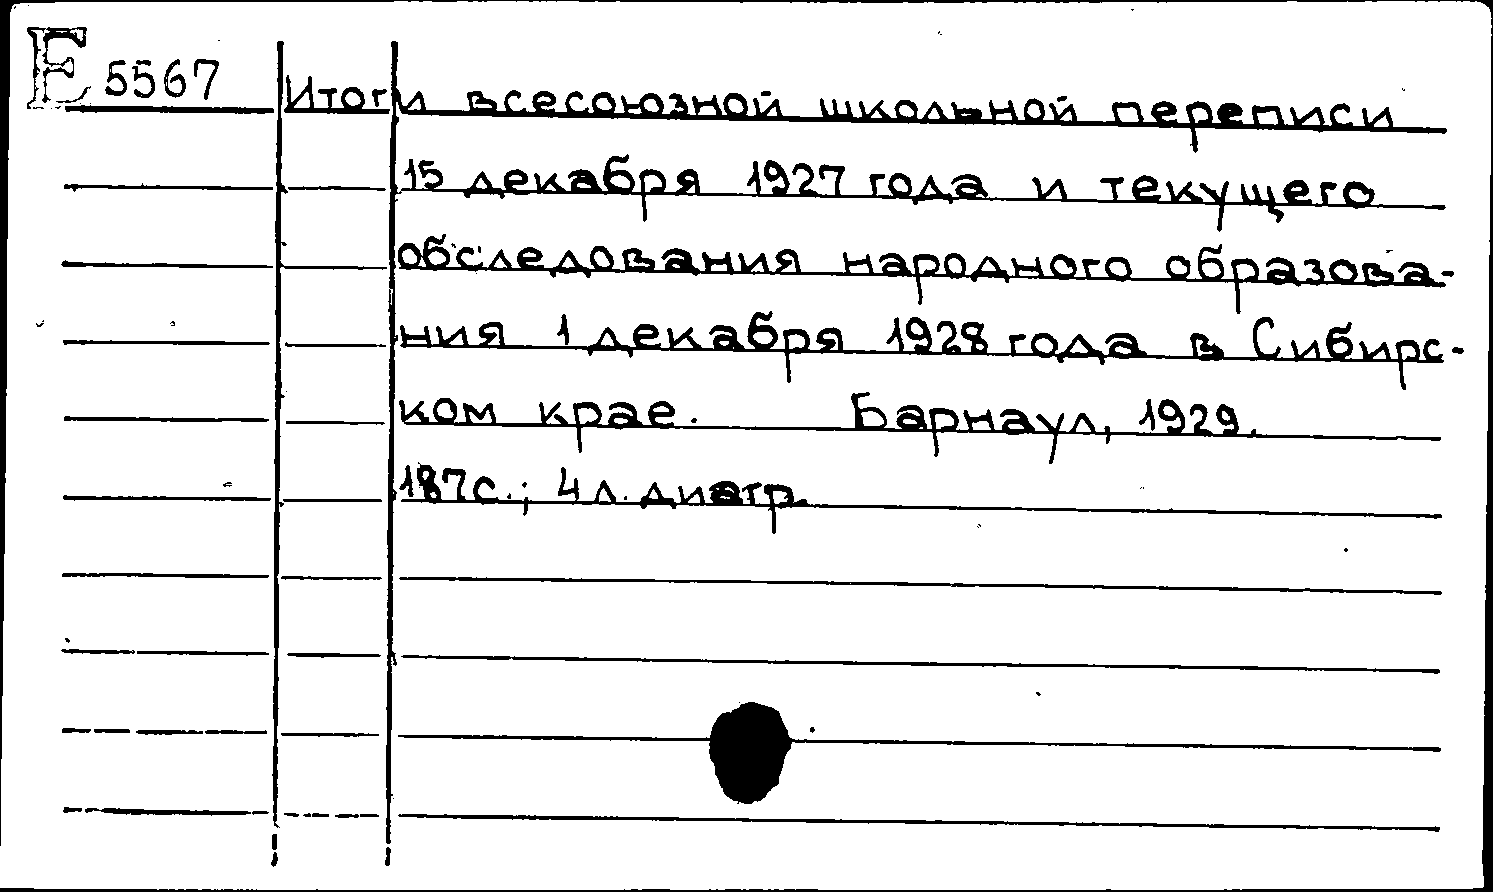 E 5567 Итоги всесоюзной школьной переписи
15 декабря 1927 года и текущего
обследования народного образова-
ния 1 декабря 1928 года в Сибирс-
ком крае. Барнаул, 1929.
187с.; 4 л. диагр.